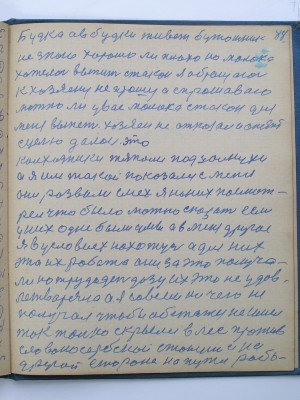 Будка а в будки живет бутошник 88
не знаю хорошо ли плохо но молоко
хотелось выпит стакан я обращаюсь
к хозяену не прошу а спрашаваю
можно ли у вас молока стакан для
меня выпет хозяен не отказал а
сцену делал это
калхозники пяпали подсолнухи
а я им такой показался с меня
они розвели смех я на них посмот
рел что было можно сказат если
у них одне были умы а в меня другая
я в условиех нахожуся а для них
эта их работа они за это получа
ли но трудодет дозу их это не удов
летваряла а я совсем ни чего не
получал чтоби
так только скрылся в лес против
словоносербской станции и на
другой стороне на пути робо-